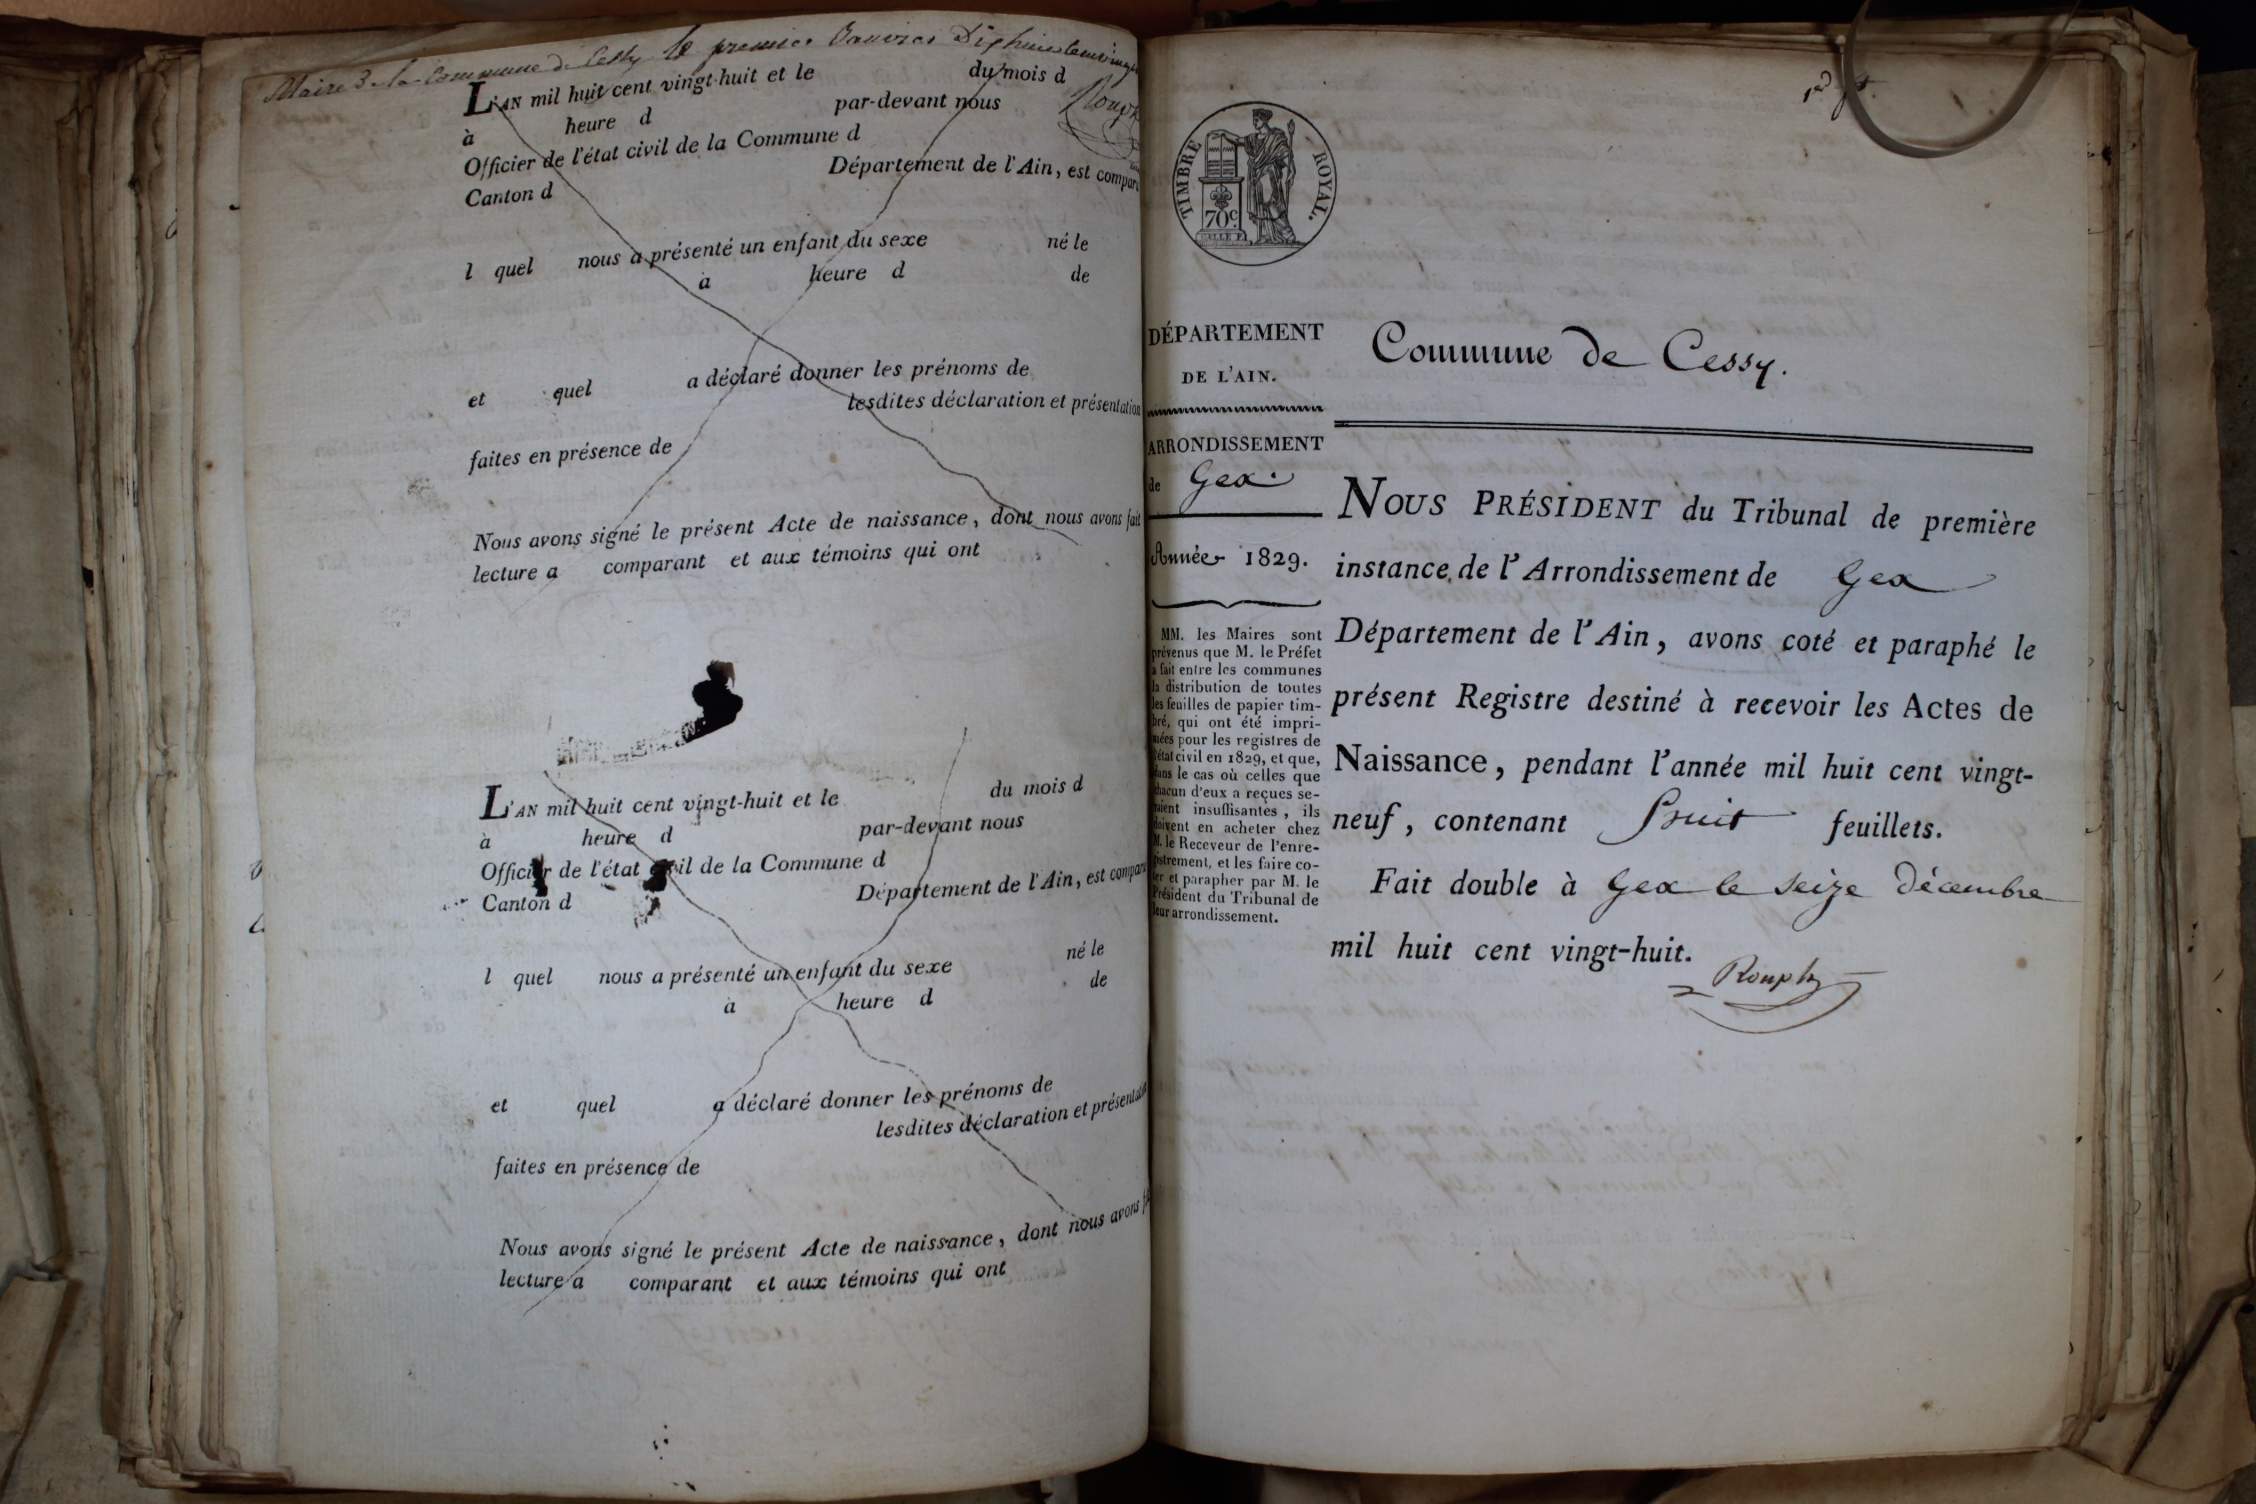 Maire de la Commune de Cessy le premier Janvier Dix huit cent vingt
L'AN mil huit cent vingt-huit et le du mois d
à heure d par-devant nous
Officier de l'état civil de la Commune d
Canton d Département de l'Ain, est comparu
l quel nous a présenté un enfant du sexe né le
à heure d de
et quel a déclaré donner les prénoms de
lesdites déclaration et présentation
faites en présence de
Nous avons signé le présent Acte de naissance, dont nous avons fait
lecture a comparant et aux témoins qui ont
L'AN mil huit cent vingt-huit et le du mois d
à heure d par-devant nous
Officier de l'état civil de la Commune d
Canton d Département de l'Ain, est comparu
l quel nous a présenté un enfant du sexe né le
à heure d de
et quel a déclaré donner les prénoms de
lesdites déclaration et présentation
faites en présence de
Nous avons signé le présent Acte de naissance, dont nous avons
lecture a comparant et aux témoins qui ont
TIMBRE ROYAL.
70c.
DÉPARTEMENT
DE L'AIN.
ARRONDISSEMENT
de Gex.
Année 1829.
MM. les Maires sont
prévenus que M. le Préfet
a fait entre les communes
la distribution de toutes
les feuilles de papier tim-
bré, qui ont été impri-
mées pour les registres de
l'état civil en 1829, et que,
dans le cas où celles que
chacun d'eux a reçues se-
raient insuffisantes, ils
doivent en acheter chez
M. le Receveur de l'enre-
gistrement, et les faire co-
ter et parapher par M. le
Président du Tribunal de
leur arrondissement.
Commune de Cessy.
NOUS PRÉSIDENT du Tribunal de première
instance de l'Arrondissement de Gex
Département de l'Ain, avons coté et paraphé le
présent Registre destiné à recevoir les Actes de
Naissance, pendant l'année mil huit cent vingt-
neuf, contenant huit feuillets.
Fait double à Gex le seize décembre
mil huit cent vingt-huit.